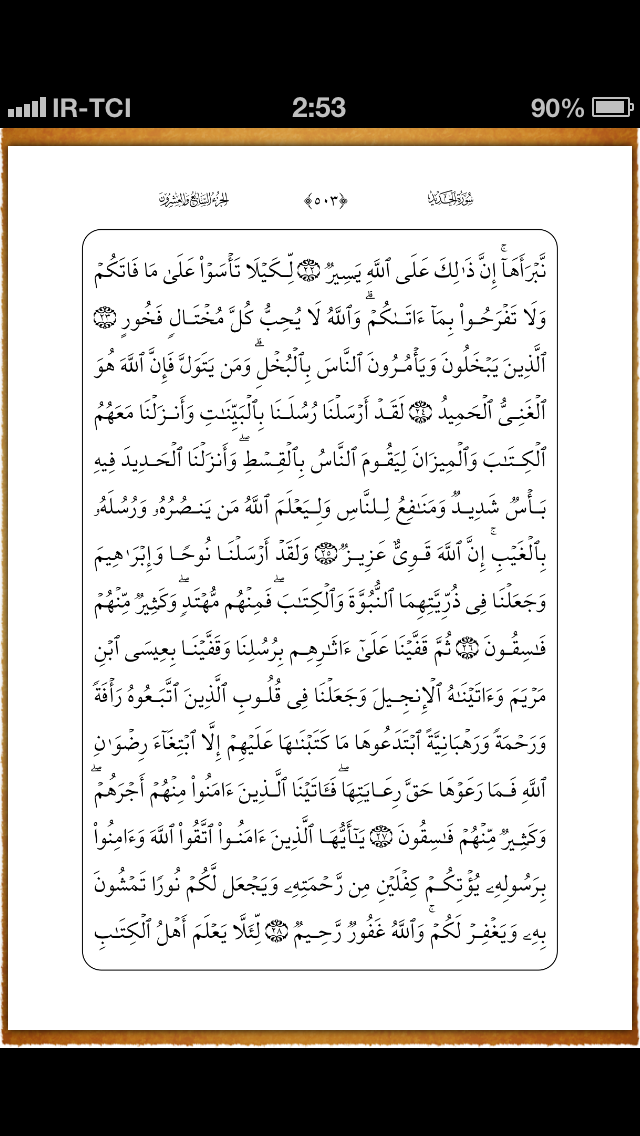 IR-TCI 2:53 90%
سُورَةُ الحَدِيد ﴿٥٠٣﴾ الجُزءُ السَّابِعُ وَالعِشرُونَ
نَّبۡرَأَهَآۚ إِنَّ ذَٰلِكَ عَلَى ٱللَّهِ يَسِيرٞ ٢٢ لِّكَيۡلَا تَأۡسَوۡاْ عَلَىٰ مَا فَاتَكُمۡ
وَلَا تَفۡرَحُواْ بِمَآ ءَاتَىٰكُمۡۗ وَٱللَّهُ لَا يُحِبُّ كُلَّ مُخۡتَالٖ فَخُورٍ ٢٣
ٱلَّذِينَ يَبۡخَلُونَ وَيَأۡمُرُونَ ٱلنَّاسَ بِٱلۡبُخۡلِۗ وَمَن يَتَوَلَّ فَإِنَّ ٱللَّهَ هُوَ
ٱلۡغَنِيُّ ٱلۡحَمِيدُ ٢٤ لَقَدۡ أَرۡسَلۡنَا رُسُلَنَا بِٱلۡبَيِّنَٰتِ وَأَنزَلۡنَا مَعَهُمُ
ٱلۡكِتَٰبَ وَٱلۡمِيزَانَ لِيَقُومَ ٱلنَّاسُ بِٱلۡقِسۡطِۖ وَأَنزَلۡنَا ٱلۡحَدِيدَ فِيهِ
بَأۡسٞ شَدِيدٞ وَمَنَٰفِعُ لِلنَّاسِ وَلِيَعۡلَمَ ٱللَّهُ مَن يَنصُرُهُۥ وَرُسُلَهُۥ
بِٱلۡغَيۡبِۚ إِنَّ ٱللَّهَ قَوِيٌّ عَزِيزٞ ٢٥ وَلَقَدۡ أَرۡسَلۡنَا نُوحٗا وَإِبۡرَٰهِيمَ
وَجَعَلۡنَا فِي ذُرِّيَّتِهِمَا ٱلنُّبُوَّةَ وَٱلۡكِتَٰبَۖ فَمِنۡهُم مُّهۡتَدٖۖ وَكَثِيرٞ مِّنۡهُمۡ
فَٰسِقُونَ ٢٦ ثُمَّ قَفَّيۡنَا عَلَىٰٓ ءَاثَٰرِهِم بِرُسُلِنَا وَقَفَّيۡنَا بِعِيسَى ٱبۡنِ
مَرۡيَمَ وَءَاتَيۡنَٰهُ ٱلۡإِنجِيلَ وَجَعَلۡنَا فِي قُلُوبِ ٱلَّذِينَ ٱتَّبَعُوهُ رَأۡفَةٗ
وَرَحۡمَةٗ وَرَهۡبَانِيَّةً ٱبۡتَدَعُوهَا مَا كَتَبۡنَٰهَا عَلَيۡهِمۡ إِلَّا ٱبۡتِغَآءَ رِضۡوَٰنِ
ٱللَّهِ فَمَا رَعَوۡهَا حَقَّ رِعَايَتِهَاۖ فَـَٔاتَيۡنَا ٱلَّذِينَ ءَامَنُواْ مِنۡهُمۡ أَجۡرَهُمۡۖ
وَكَثِيرٞ مِّنۡهُمۡ فَٰسِقُونَ ٢٧ يَٰٓأَيُّهَا ٱلَّذِينَ ءَامَنُواْ ٱتَّقُواْ ٱللَّهَ وَءَامِنُواْ
بِرَسُولِهِۦ يُؤۡتِكُمۡ كِفۡلَيۡنِ مِن رَّحۡمَتِهِۦ وَيَجۡعَل لَّكُمۡ نُورٗا تَمۡشُونَ
بِهِۦ وَيَغۡفِرۡ لَكُمۡۚ وَٱللَّهُ غَفُورٞ رَّحِيمٞ ٢٨ لِّئَلَّا يَعۡلَمَ أَهۡلُ ٱلۡكِتَٰبِ